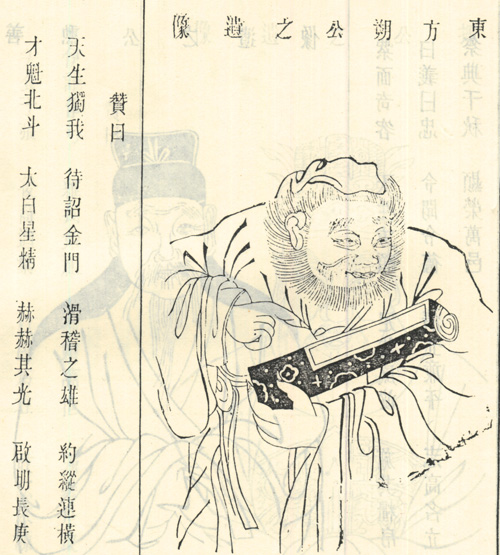 東方朔公之遺像
贊曰
天生獨我 待詔金門 滑稽之雄 約縱連橫
才魁北斗 太白星精 赫赫其光 啟朙長庚